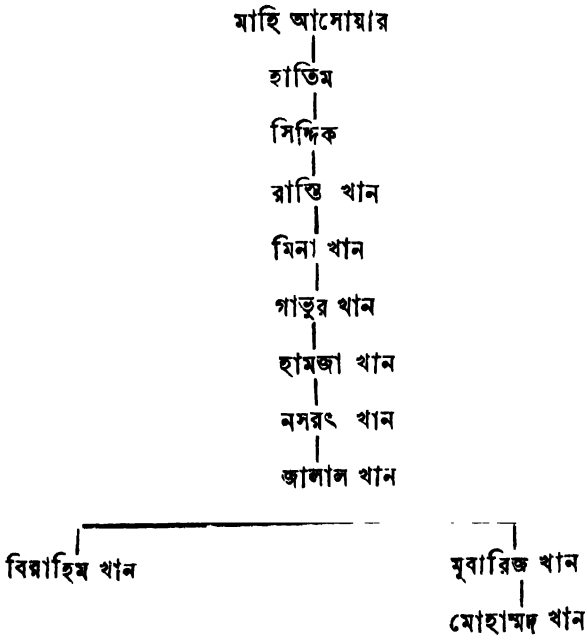 মাহি আসোয়ার
হাতিম
সিদ্দিক
রাস্তি খান
মিনা খান
গাভুর খান
হামজা খান
নসরৎ খান
জালাল খান
বিব্রাহিম খান
মুবারিজ খান
মোহাম্মদ খান